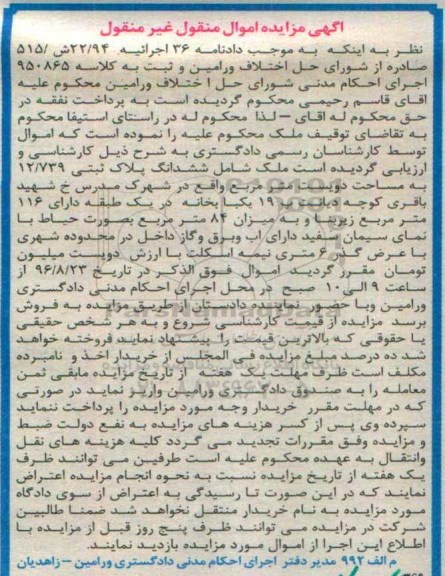 آگهی مزایده اموال منقول غیر منقول
نظر به اینکه به موجب دادنامه ۳۶ اجرائیه ۲۲/۹۴ش /۵۱۵
صادره از شورای حل اختلاف ورامین و ثبت به کلاسه ۹۵۰۸۶۵
اجرای احکام مدنی شورای حل ا ختلاف ورامین محکوم علیه
اقای قاسم رحیمی محکوم گردیده است به پرداخت نفقه در
حق محکوم له اقای – لذا محکوم له در راستای استیفا محکوم
به تقاضای توقیف ملک محکوم علیه را نموده است که اموال
توسط کارشناسان رسمی دادگستری به شرح ذیل کارشناسی و
ارزیابی گردیده است ملک شامل ششدانگ پلاک ثبتی ۱۲/۷۳۹
به مساحت دویست متر مربع واقع در شهرک مدرس خ شهید
باقری کوچه دیاب نیر ۱۹ یکبا بخانه در یک طبقه دارای ۱۱۶
متر مربع زیربنا و به میزان ۸۴ متر مربع بصورت حیاط با
نمای سیمان سفید دارای اب وبرق وگاز داخل در محدوده شهری
با عرض گذر ۶ متری نیمه اسکلت با ارزش دویست میلیون
تومان مقرر گردید اموال فوق الذکر در تاریخ ۹۶/۸/۲۳ از
ساعت ۹ الی ۱۰ صبح در محل اجرای احکام مدنی دادگستری
ورامین وبا حضور نماینده دادستان از طریق مزایده به فروش
برسد مزایده از قیمت کارشناسی شروع و به هر شخص حقیقی
یا حقوقی که بالاترین قیمت را پیشنهاد نماید فروخته خواهد
شد ده درصد مبلغ مزایده فی المجلس از خریدار اخذ و نامبرده
مکلف است ظرف مهلت یک هفته از تاریخ مزایده مابقی ثمن
معامله را به صندوق دادگستری ورامین واریز نماید در صورتی
که در مهلت مقرر خریدار وجه مورد مزایده را پرداخت ننماید
سپرده وی پس از کسر هزینه های مزایده به نفع دولت ضبط
و مزایده وفق مقررات تجدید می گردد کلیه هزینه های نقل
وانتقال به عهده محکوم علیه است طرفین می توانند ظرف
یک هفته از تاریخ مزایده نسبت به نحوه انجام مزایده اعتراض
نمایند که در این صورت تا رسیدگی به اعتراض از سوی دادگاه
مورد مزایده به نام خریدار منتقل نخواهد شد ضمنا طالبین
شرکت در مزایده می توانند ظرف پنج روز قبل از مزایده با
اطلاع این اجرا از اموال مورد مزایده بازدید نمایند.
م الف ۹۹۲ مدیر دفتر اجرای احکام مدنی دادگستری ورامین – زاهدیان